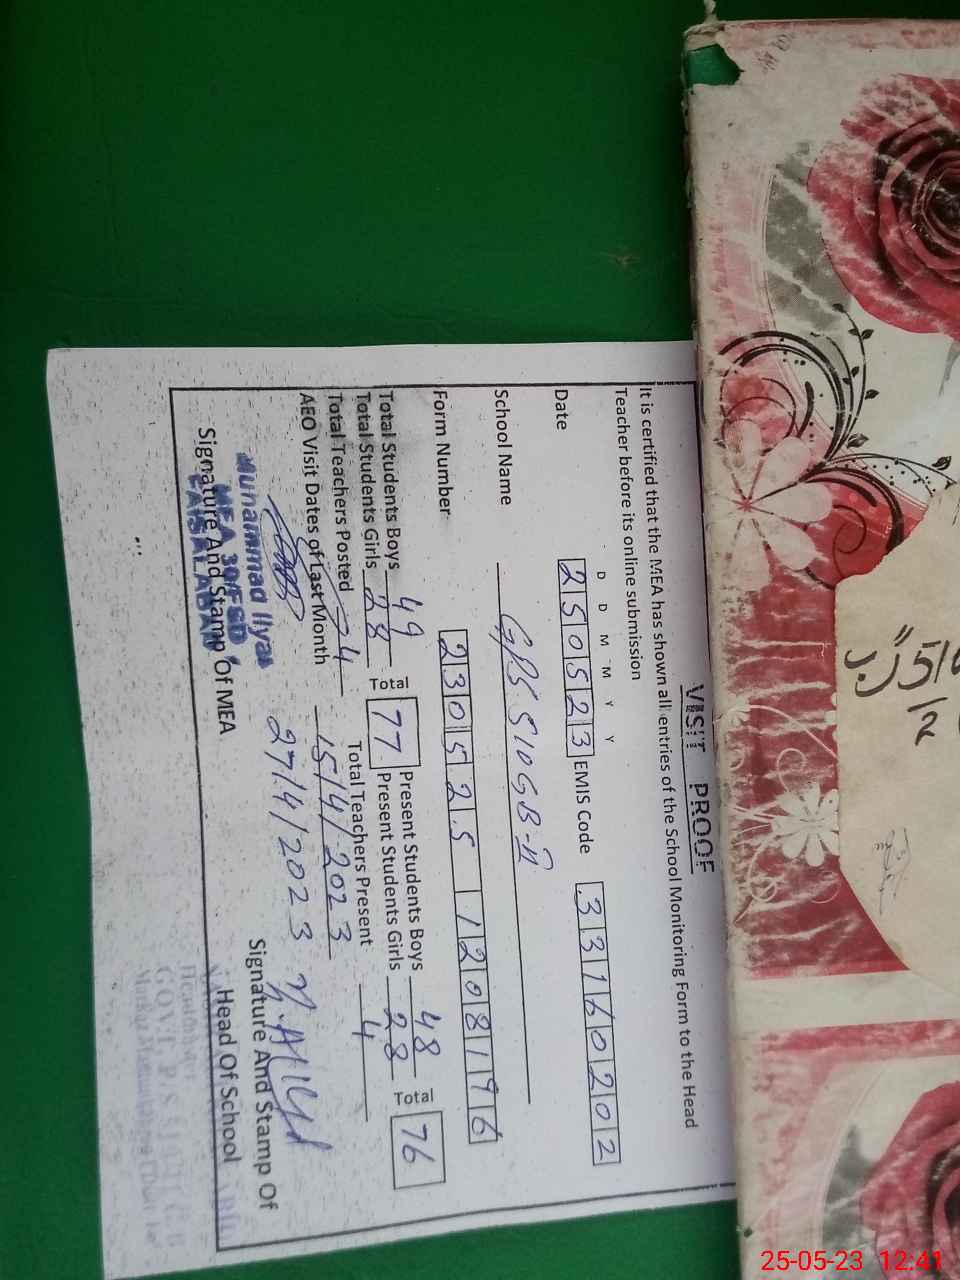 VISIT PROOF
It is certified that the MEA has shown all entries of the School Monitoring Form to the Head
Teacher before its online submission
D D M M Y Y
Date 250523 EMIS Code 33160202
School Name GPS 510 GB-II
Form Number 230525 1208196
Total Students Boys 49 Total 77 Present Students Boys 48 Total 76
Total Students Girls 28 Present Students Girls 28
Total Teachers Posted 4 Total Teachers Present 4
AEO Visit Dates of Last Month 15/4/2023
27/4/2023
Muhammad Ilyas
MEA 30/FSD
FAISALABAD
Signature And Stamp Of MEA
Signature And Stamp Of
Head Of School
510
/2
25-05-23 12:41